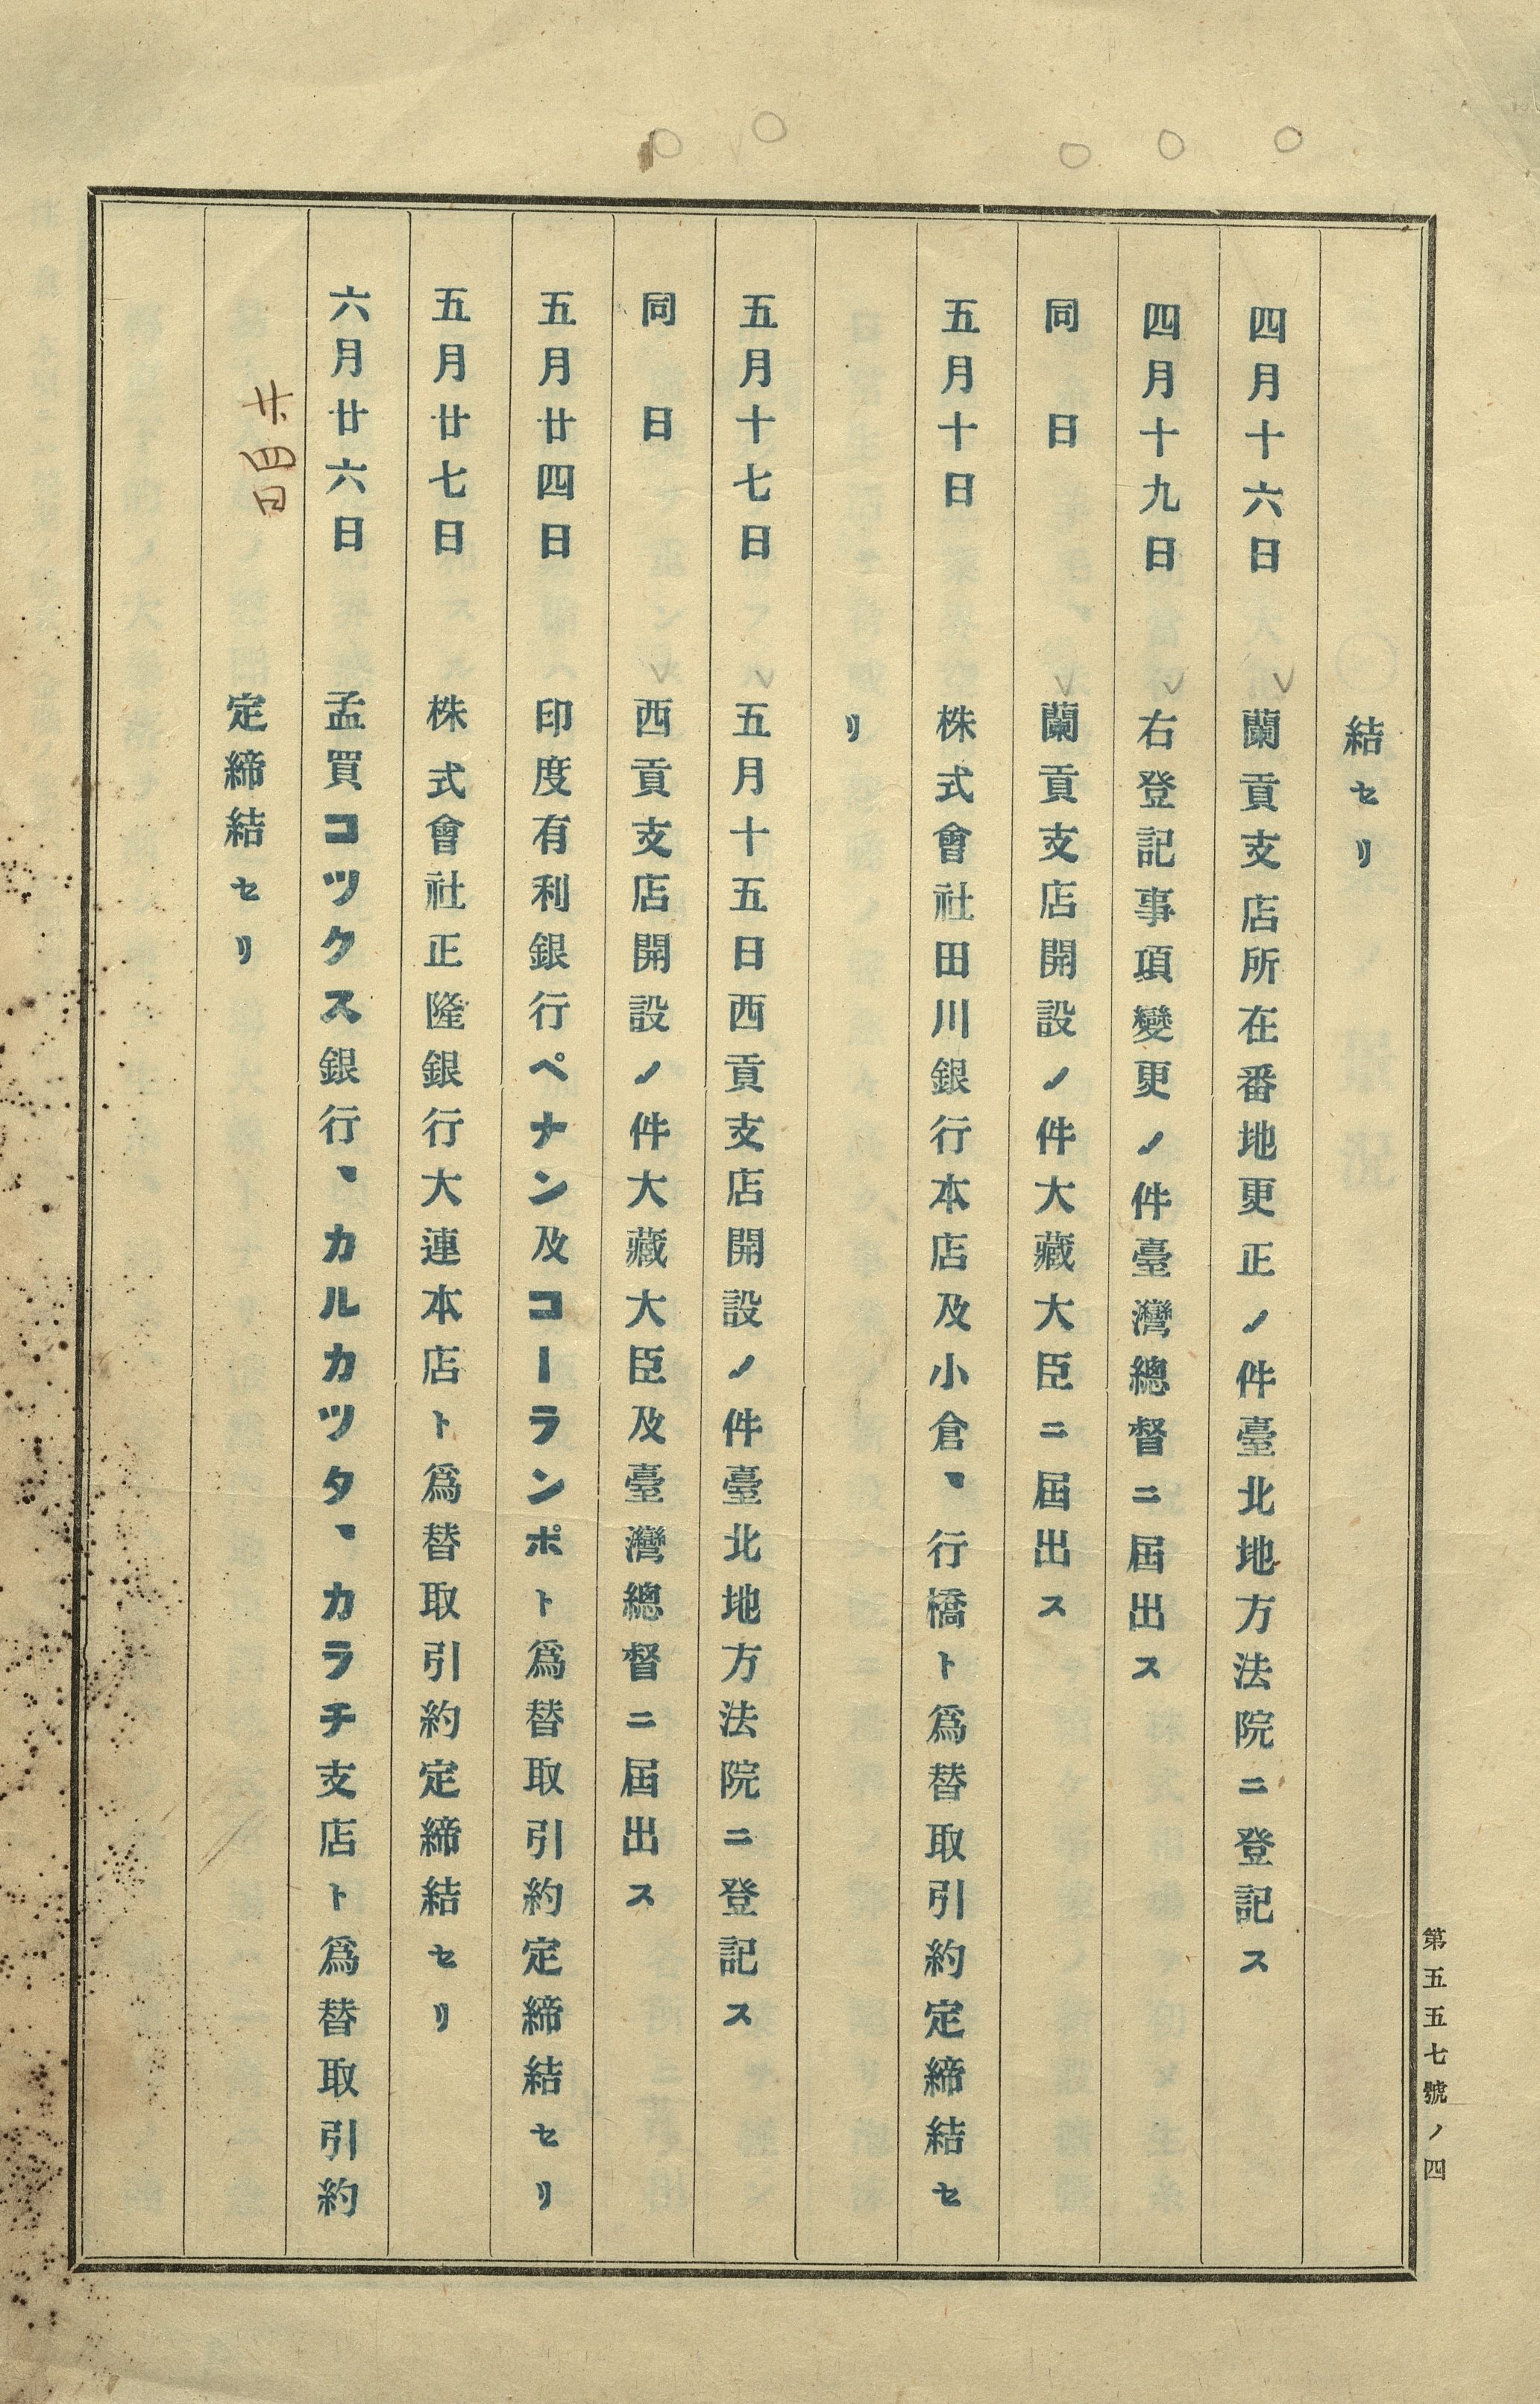 結セリ
四月十六日 蘭貢支店所在番地更正ノ件臺北地方法院ニ登記ス
四月十九日 右登記事項變更ノ件臺灣總督ニ屆出ス
同日 蘭貢支店開設ノ件大藏大臣ニ屆出ス
五月十日 株式會社田川銀行本店及小倉、行橋ト爲替取引約定締結セ
リ
五月十七日 五月十五日西貢支店開設ノ件臺北地方法院ニ登記ス
同日 西貢支店開設ノ件大藏大臣及臺灣總督ニ屆出ス
五月廿四日 印度有利銀行ペナン及コーランポト爲替取引約定締結セリ
五月廿七日 株式會社正隆銀行大連本店ト爲替取引約定締結セリ
六月廿六日 孟買コツクス銀行、カルカツタ、カラチ支店ト爲替取引約
廿四日
定締結セリ
第五五七號ノ四